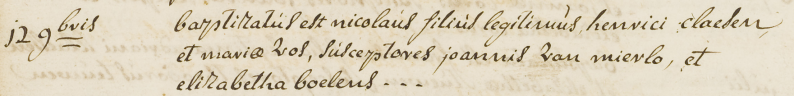 12 9bris baptizatus est nicolaus filius legitimus henrici claesen,
et mariæ vos, susceptores joannis van mierlo, et
elizabetha boelens - - -